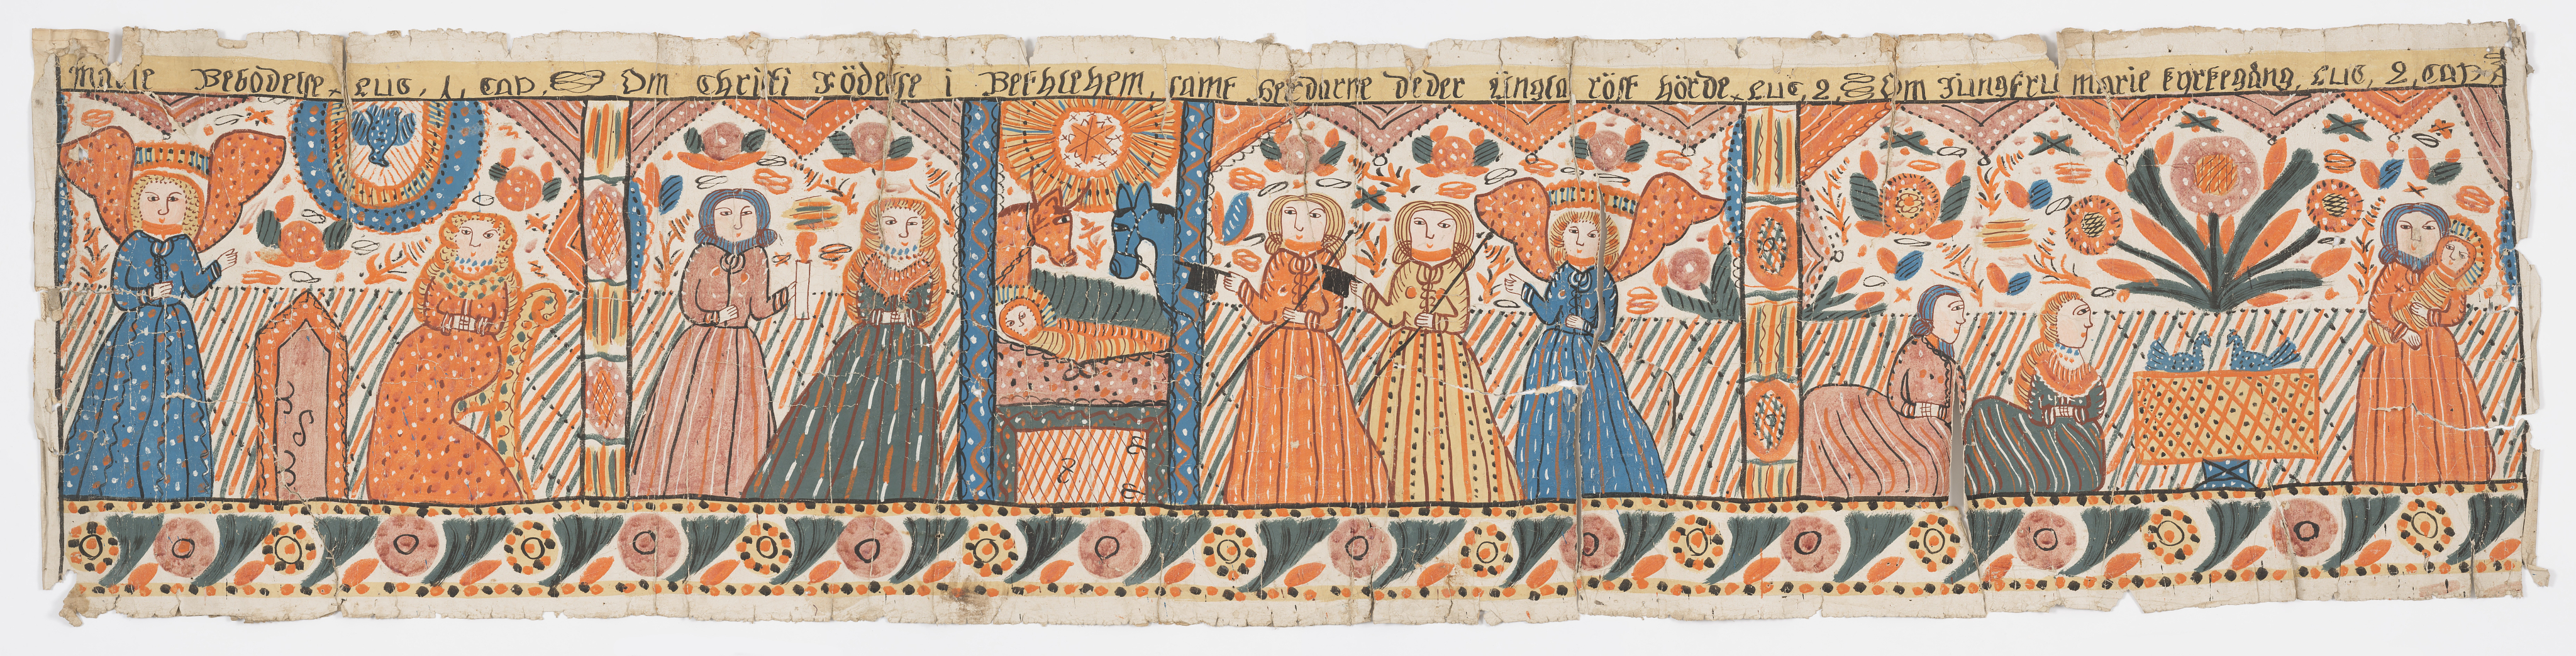 marie Bebodelse, Luc, 1, cap, Om Christi Födelse i Bethlehem, samt herdarne de der Ängla röst hörde, Luc, 2, Om Jungfru marie kyrkegång, Luc, 2, cap,